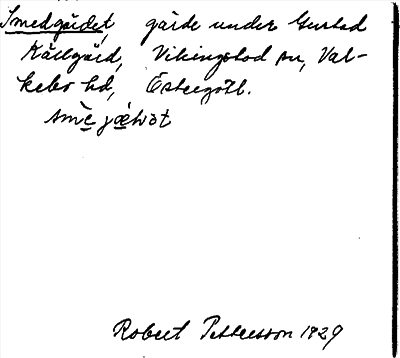 Smedgärdet, gärde under Gustad
Källgård, Vikingstad sn, Val-
kebo hd, Östergötl.
smè jæ̀ḷət
Robert Pettersson 1929